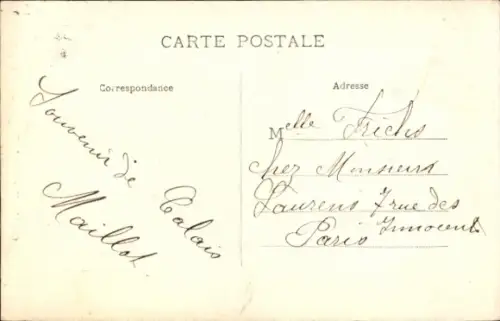 CARTE POSTALE
Correspondance
Souvenir de Calais
Maillot
Adresse
Melle
chez Monsieur
Laurens 7 rue des
Innocents
Paris